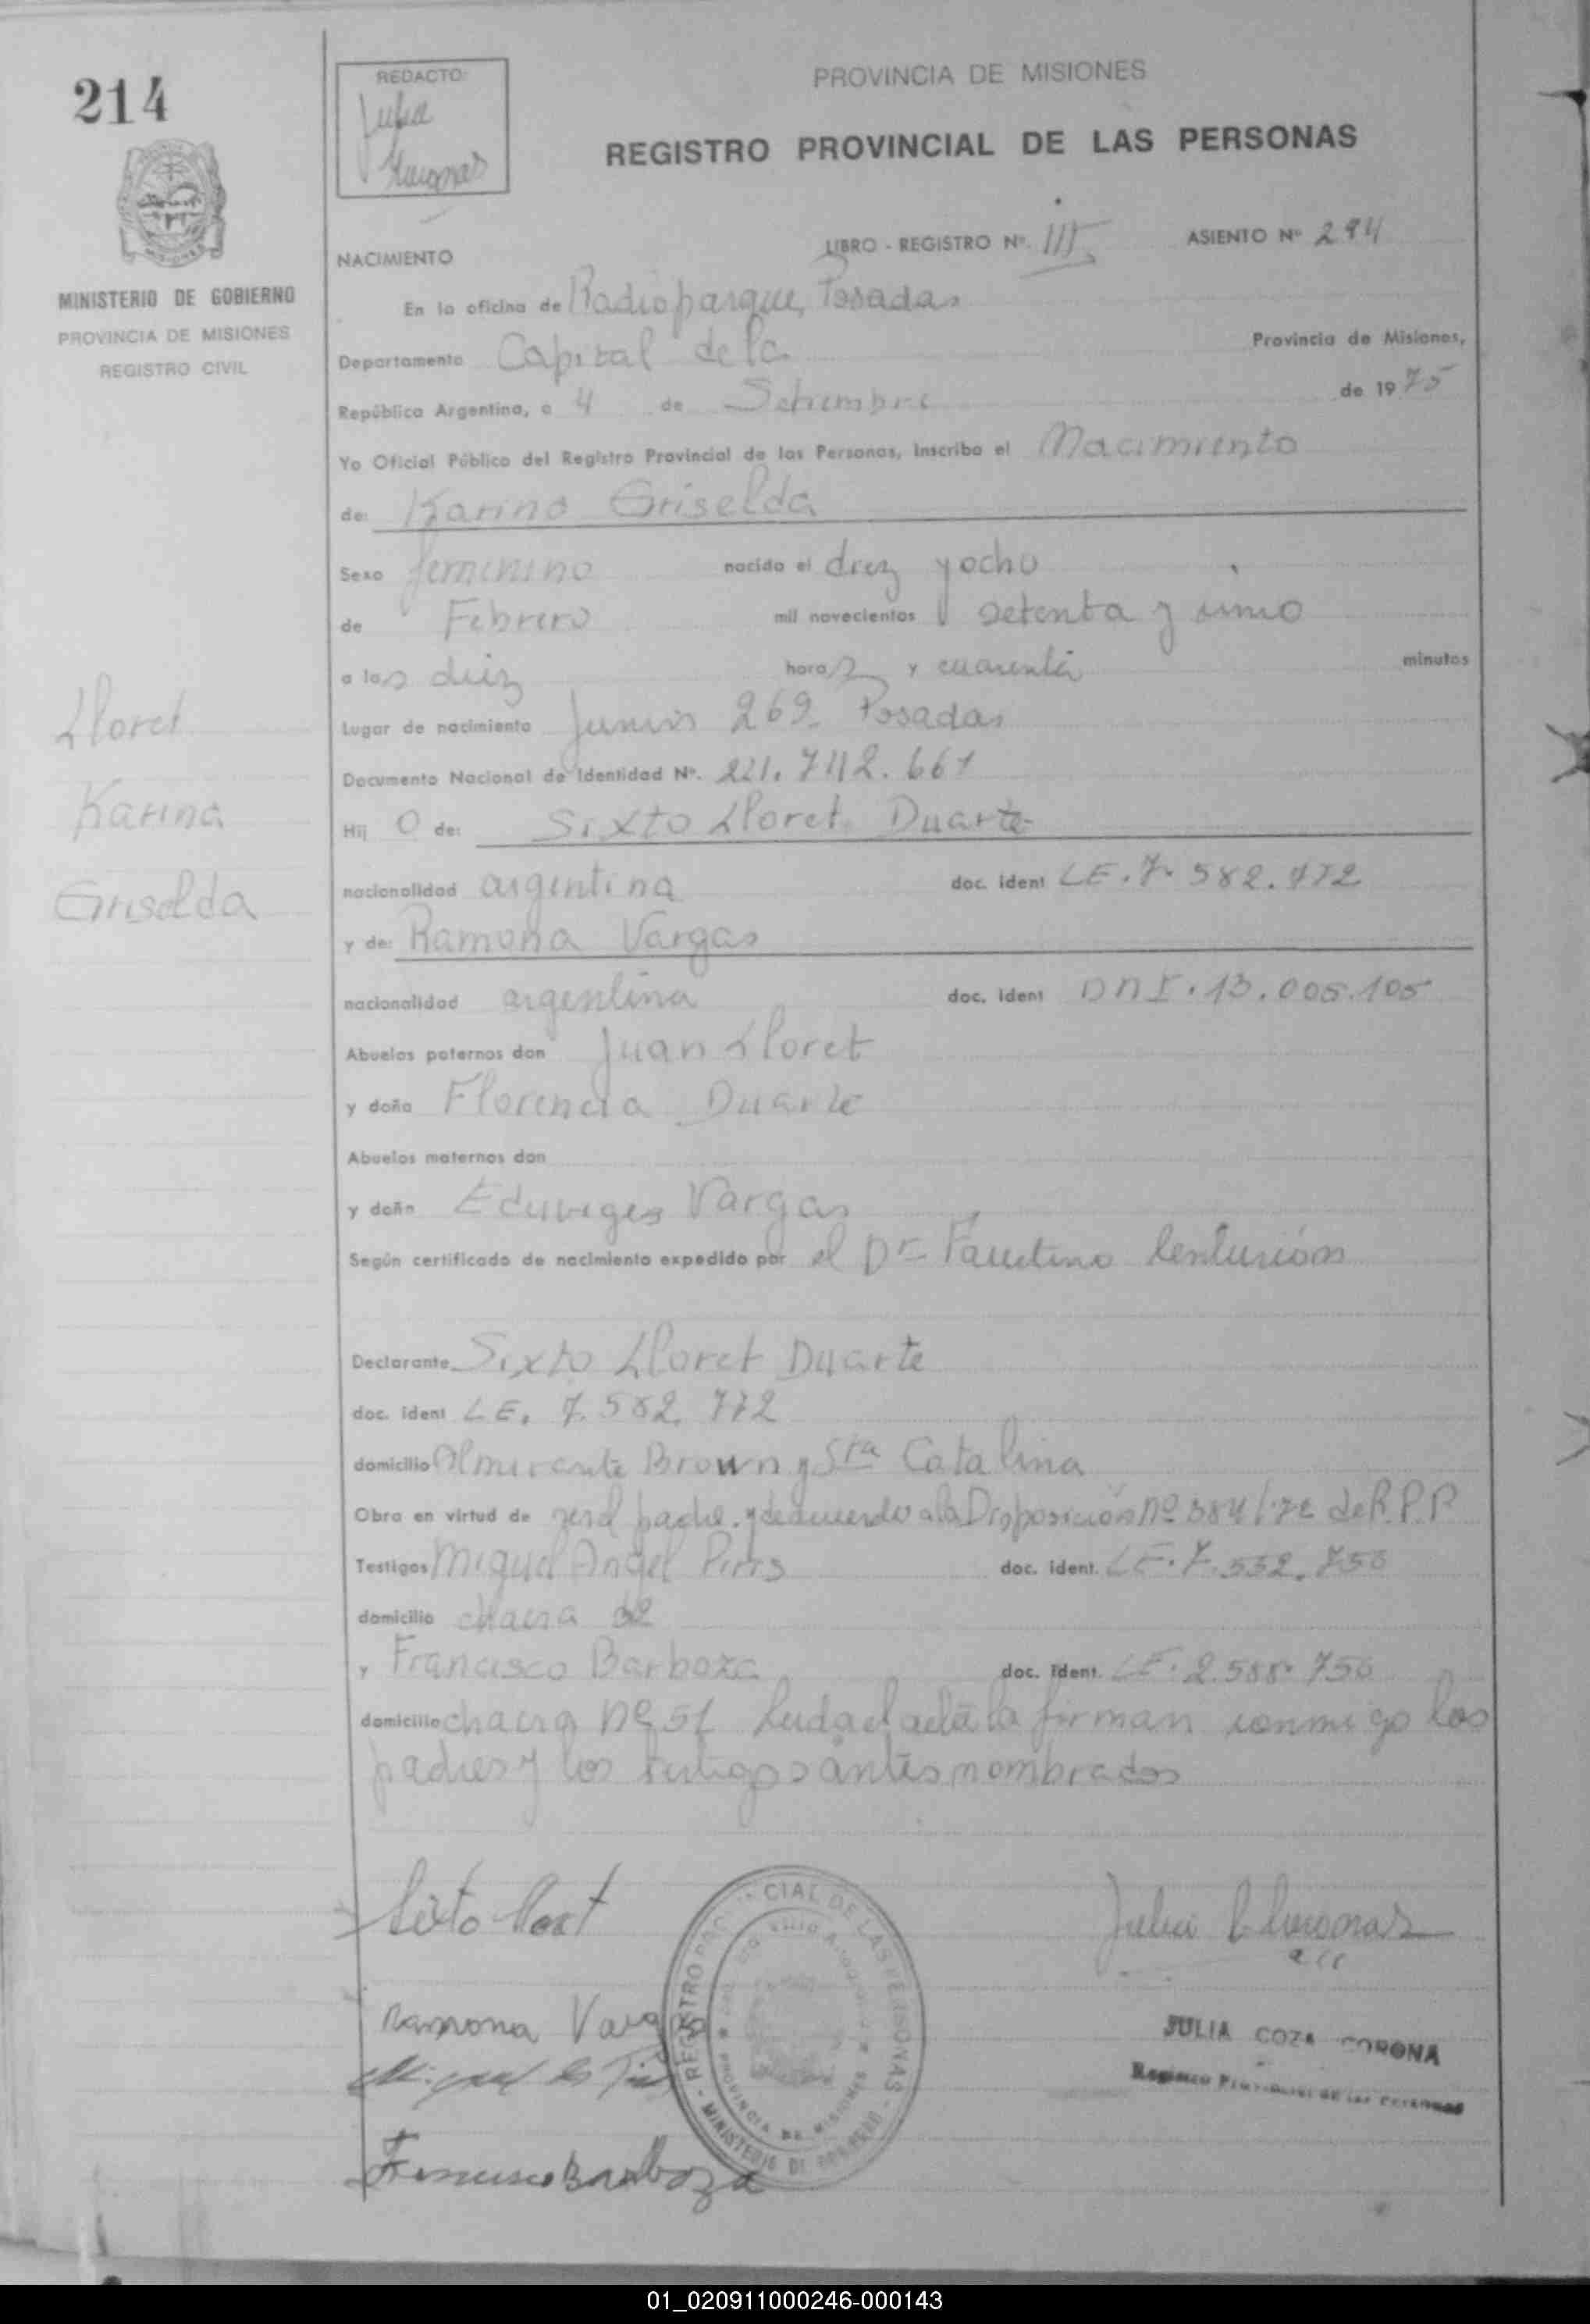 214
REDACTO:
Julia
PROVINCIA DE MISIONES
REGISTRO PROVINCIAL DE LAS PERSONAS
MISIONES
MINISTERIO DE GOBIERNO
PROVINCIA DE MISIONES
REGISTRO CIVIL
NACIMIENTO
LIBRO - REGISTRO Nº. III
ASIENTO Nº 294
En la oficina de Radioparque, Posadas
Departamento Capital de la Provincia de Misiones,
República Argentina, a 4 de Setiembre de 1975
Yo Oficial Público del Registro Provincial de las Personas, Inscribo el Nacimiento
de: Karina Griselda
Sexo femenino nacido el diez y ocho
de Febrero mil novecientos setenta y uno
a las diez horas y cuarenta minutos
Lugar de nacimiento Junin 269 Posadas
Documento Nacional de Identidad Nº.
Lloret
Karina
Griselda
Hij a de: Sixto Lloret Duarte
nacionalidad argentina doc. ident LE. 7. 582. 772
y de: Ramona Vargas
nacionalidad argentina doc. ident DNI. 13.005.105
Abuelos paternos don Juan Lloret
y doña Florencia Duarte
Abuelos maternos don
y doña Eduviges Vargas
Según certificado de nacimiento expedido por el Dr Faustino Centurión
Declarante Sixto Lloret Duarte
doc. ident LE. 7. 582. 772
domicilio Almirante Brown y Sta Catalina
Obra en virtud de ser el padre. y de acuerdo a la Disposición Nº 384/72 de R.P.P
Testigos Miguel Angel Piris doc. ident. LE. 7. 532. 756
domicilio chacra 32
y Francisco Barboza doc. ident. LE. 2.588.756
domicilio chacra Nº 51 Leida el acta la firman conmigo los
padres y los testigos antes nombrados
Sixto Lloret
Ramona Vargas
Francisco Barboza
REGISTRO PROVINCIAL DE LAS PERSONAS
PROVINCIA DE MISIONES
MINISTERIO DE GOBIERNO
Julia
JULIA COZA CORONA
Registro Provincial de las Personas
01_020911000246-000143